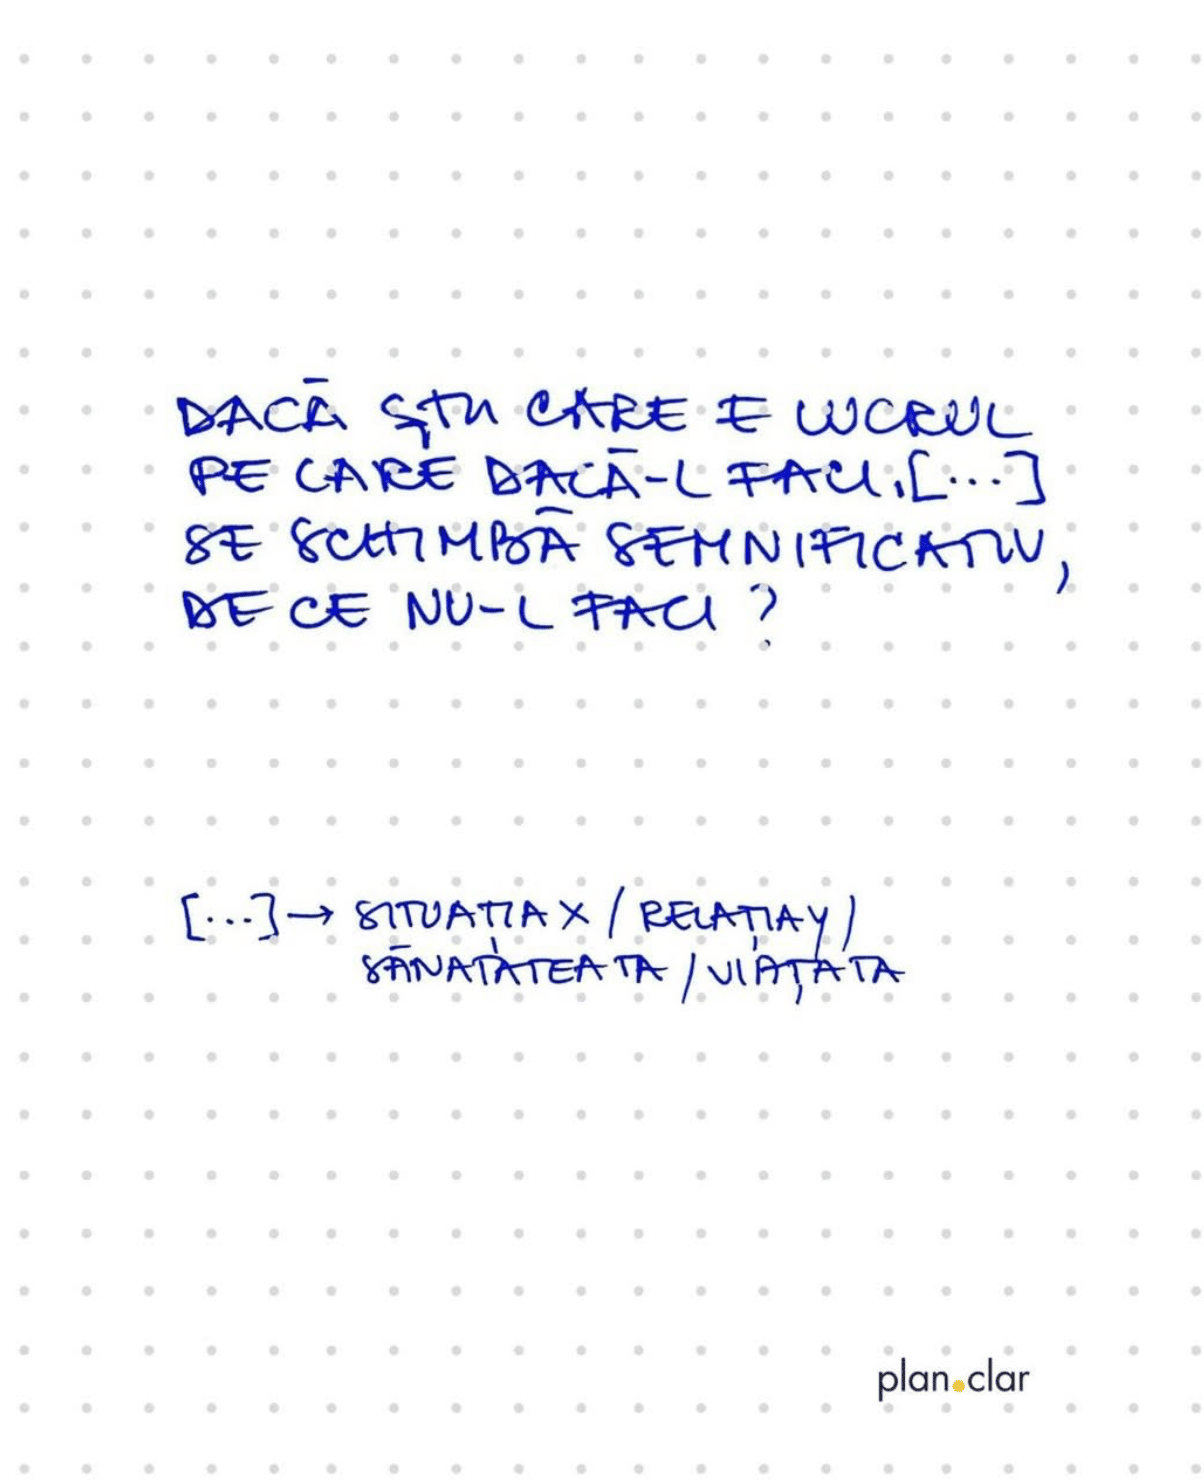 DACĂ ȘTII CARE E LUCRUL
PE CARE DACĂ-L FACI, [...]
SE SCHIMBĂ SEMNIFICATIV,
DE CE NU-L FACI ?
[...] → SITUAȚIA X / RELAȚIA Y /
SĂNATATEA TA / VIAȚA TA
plan.clar